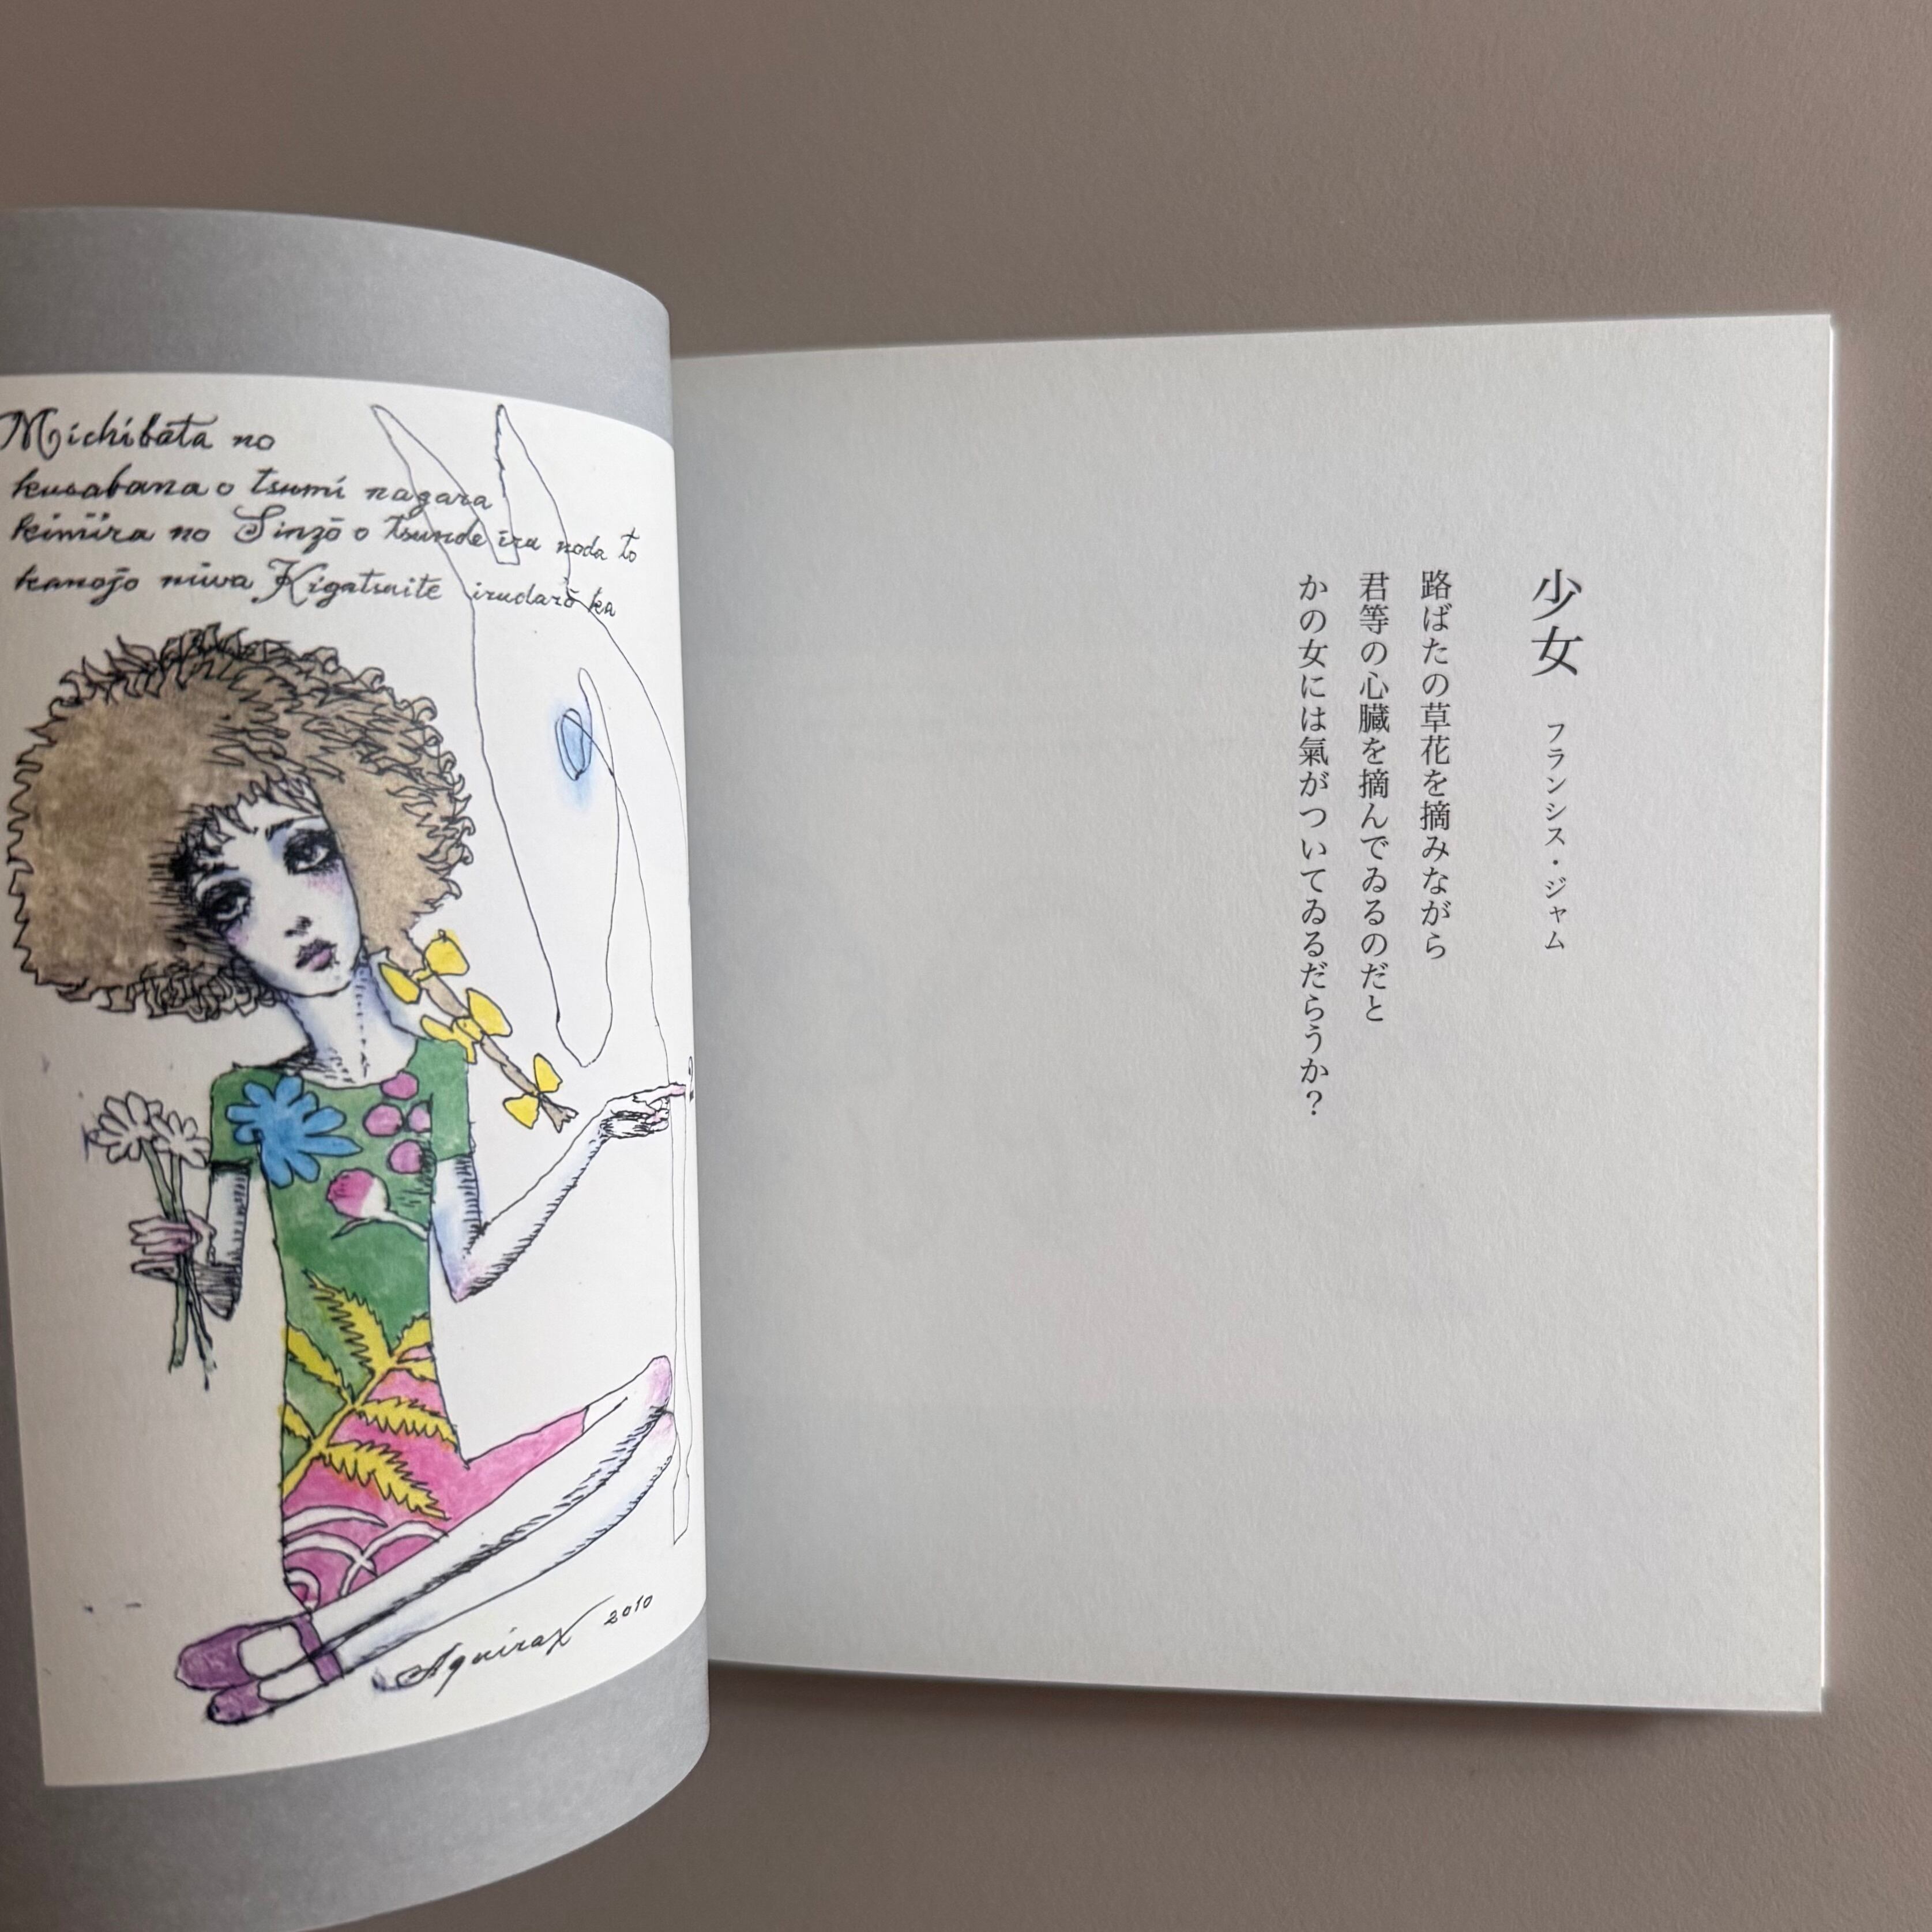 Michibata no
kusabana o tsumi nagara
kimira no Sinzō o tsunde iru noda to
kanojo niwa Kigatsuite irudarō ka
Aquirax 2010
少女 フランシス・ジャム
路ばたの草花を摘みながら
君等の心臓を摘んでゐるのだと
かの女には氣がついてゐるだらうか？